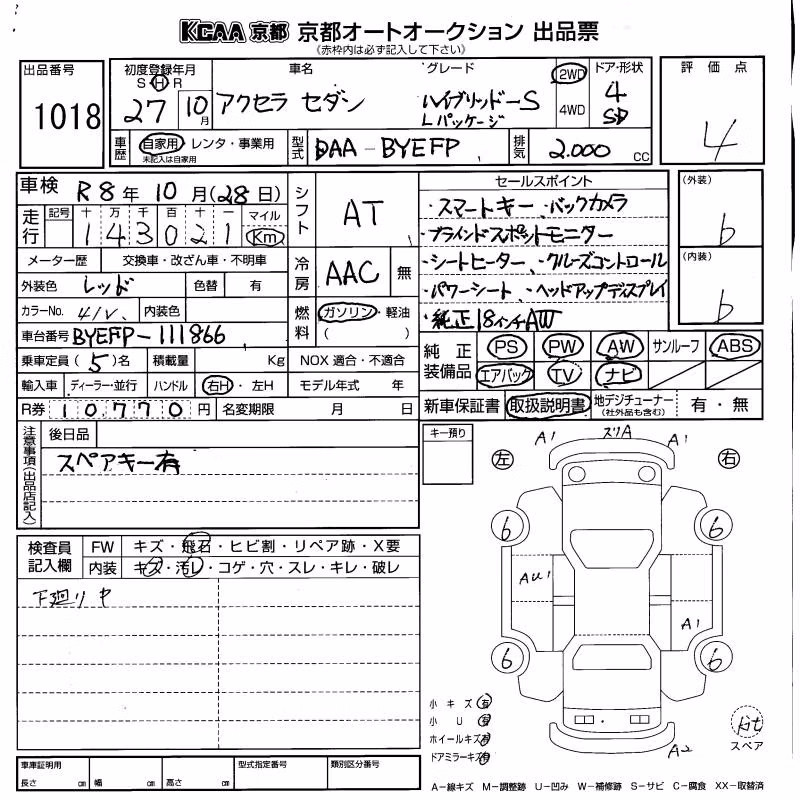 KCAA 京都 京都オートオークション 出品票
(赤枠内は必ず記入して下さい)
出品番号 1018
初度登録年月 S H R 27 10月
車名 アクセラ セダン
グレード ハイブリッドーS Lパッケージ
2WD 4WD
ドア・形状 4 SD
評価点 4
車歴 自家用・レンタ・事業用 未記入は自家用
型式 DAA-BYEFP
排気 2.000 CC
車検 R8年10月(28日)
走行 記号 十 万 千 百 十 一 マイル
143021 Km
メーター歴 交換車・改ざん車・不明車
外装色 レッド 色替 有
カラーNo. 41V. 内装色
車台番号 BYEFP-111866
乗車定員(5)名 積載量 Kg
輸入車 ディーラー・並行 ハンドル 右H・左H
R券 10,770円 名変期限 月 日
シフト AT
冷房 AAC 無
燃料 ガソリン・軽油 ( )
NOX 適合・不適合
モデル年式 年
セールスポイント
・スマートキー、・バックカメラ
・ブラインドスポットモニター
・シートヒーター、・クルーズコントロール
・パワーシート、・ヘッドアップディスプレイ
・純正18インチAW
(外装) b
(内装) b
純正装備品 PS PW AW サンルーフ ABS
エアバック TV ナビ
新車保証書 取扱説明書 地デジチューナー (社外品も含む) 有・無
注意事項(出品店記入)
後日品
スペアキー有
キー預り
検査員記入欄
FW キズ・飛石・ヒビ割・リペア跡・X要
内装 キズ・汚レ・コゲ・穴・スレ・キレ・破レ
下廻り中
左 右
A1 スリA A1
6 6
AU1
A1
6 6
A2
小キズ 有
小U 有
ホイールキズ 有
ドアミラーキズ 有
kit
スペア
車庫証明用
長さ cm 幅 cm 高さ cm
型式指定番号
類別区分番号
A-線キズ M-調整跡 U-凹み W-補修跡 S-サビ C-腐食 XX-取替済